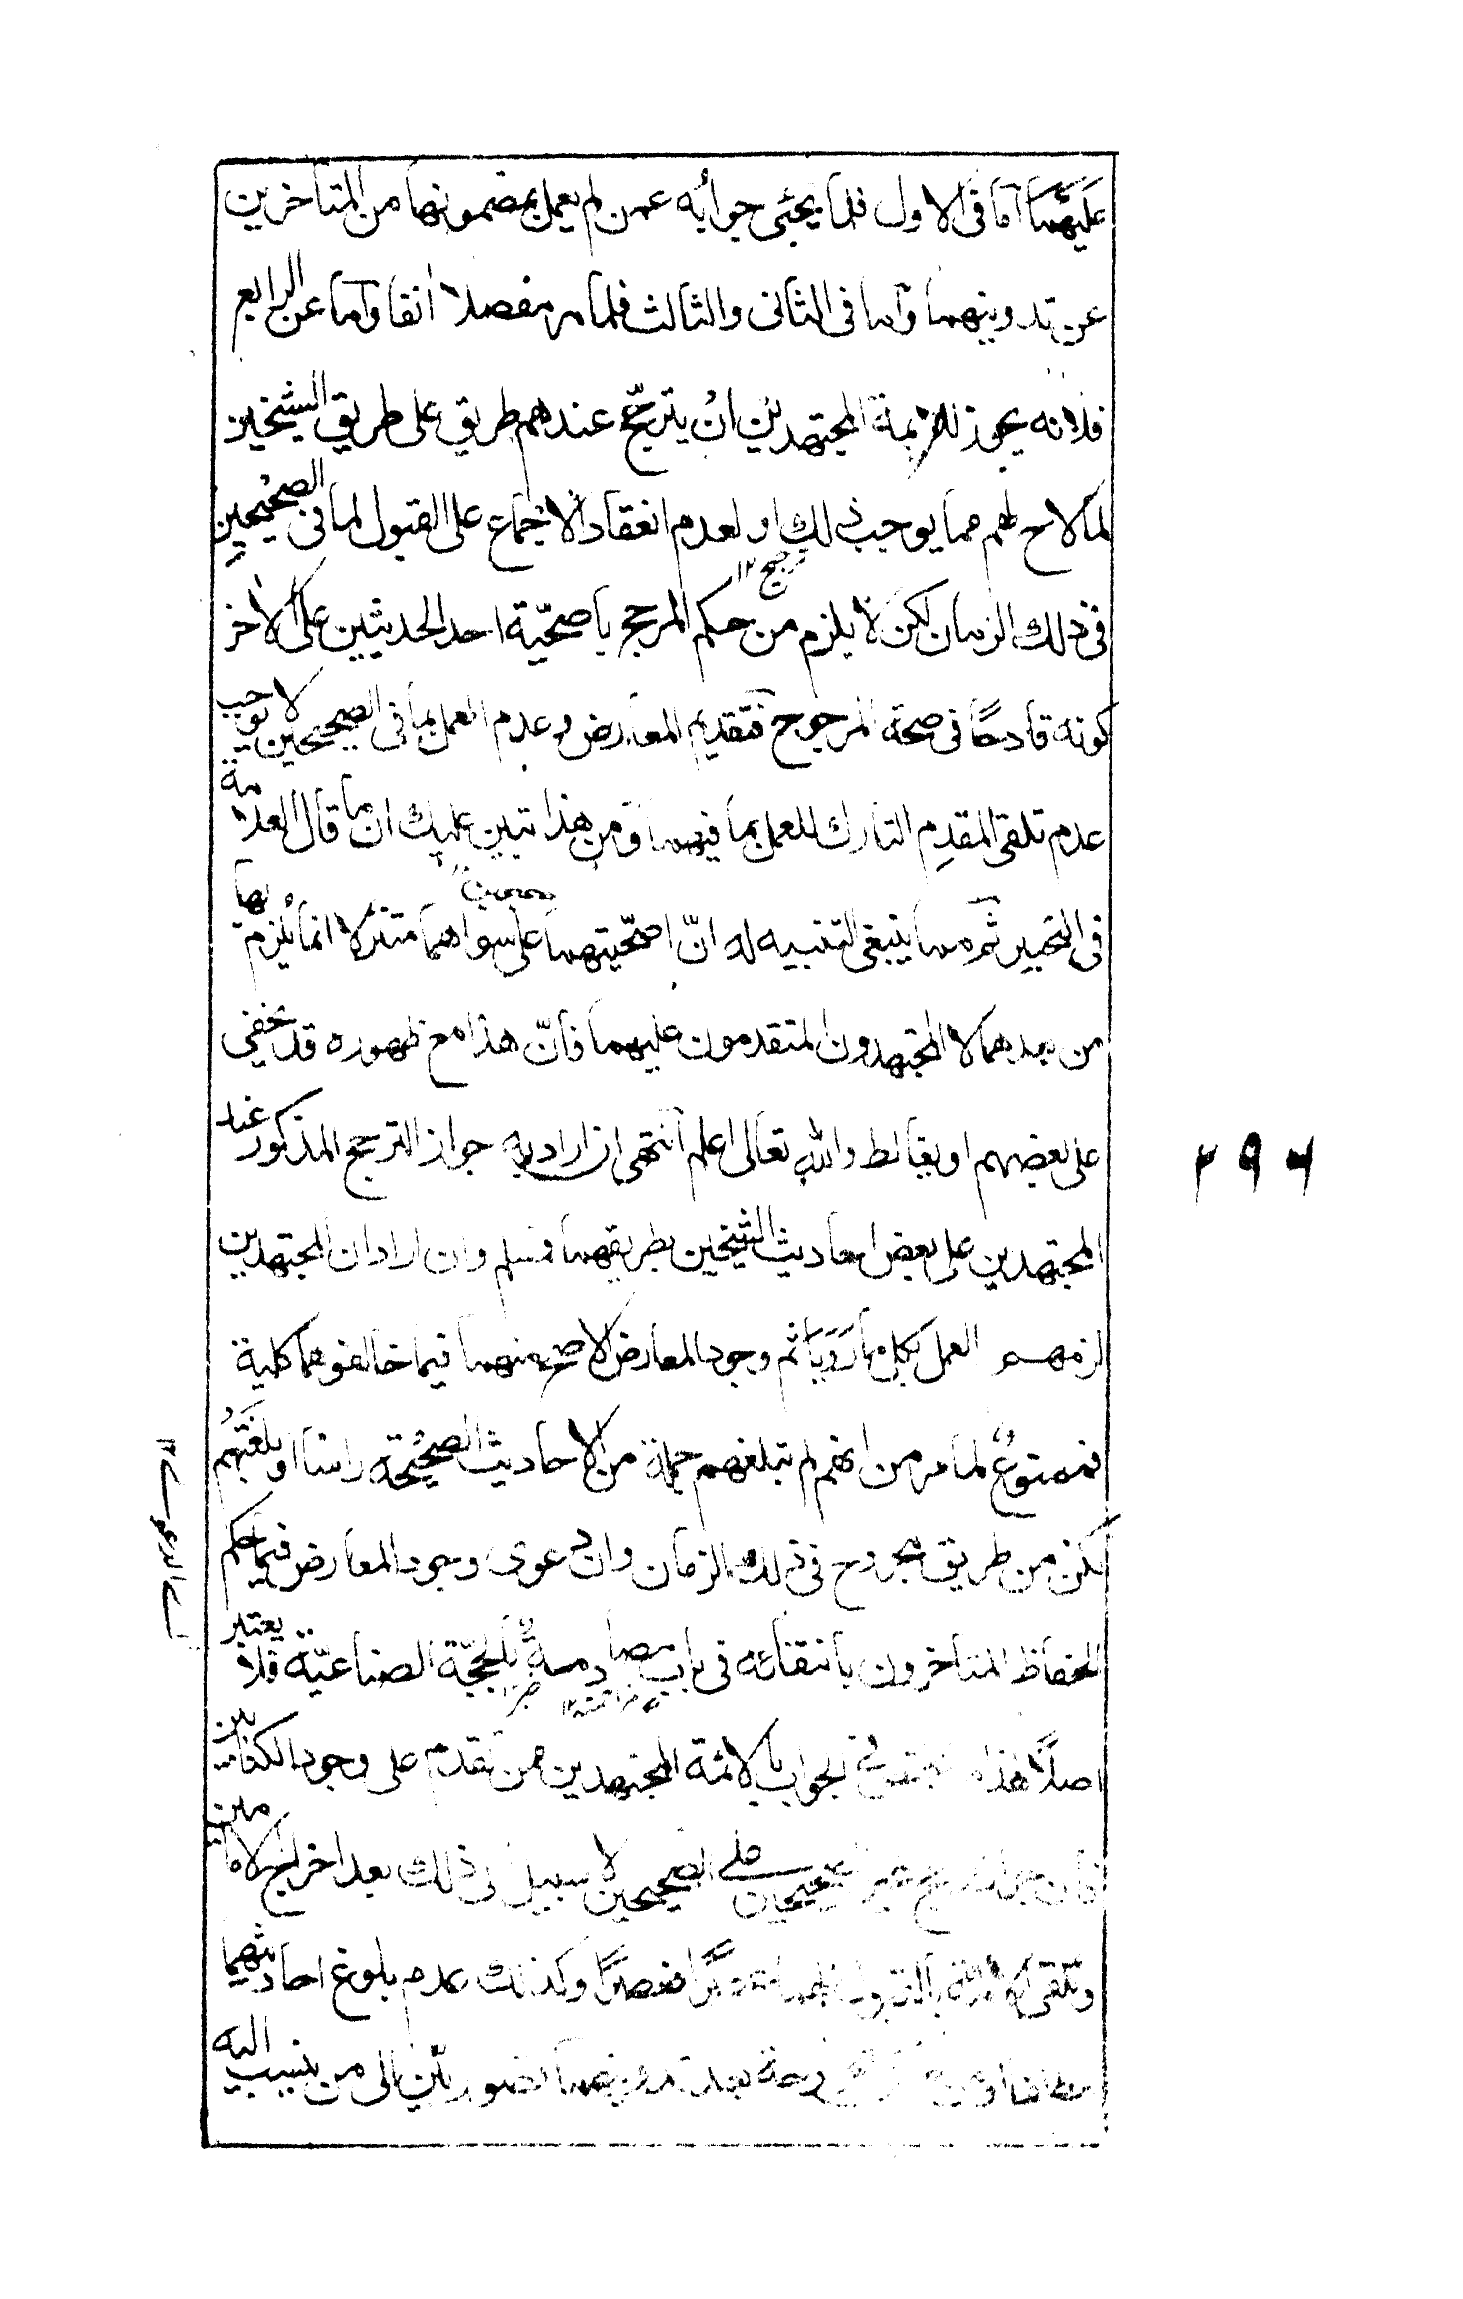 عليهما اما فى الاول فلما يجئى جوابه عمن لم يعمل بمضمونهما من المتاخرين
عن تدوينهما واما فى الثانى والثالث فلما مر مفصلا انفا واما عن الرابع
فلانه يجوز للائمة المجتهدين ان يترجح عندهم طريق على طريق الشيخين
لما لاح لهم مما يوجب ذلك او لعدم انعقاد الاجماع على القبول لما فى الصحيحين
ترجيح ١٢
فى ذلك الزمان لكن لا يلزم من حكم المرجح باصحية احد الحديثين على الاخر
كونه قادحًا فى صحة المرجوح فتقديم المعارض وعدم العمل بما فى الصحيحين لا يوجب
عدم تلقى المقدم التارك للعمل بما فيهما ومن هذا تبين عليك ان ما قال العلامة
فى التحبير ثم مما ينبغى التنبيه له انّ اصحّيتهما على سواهما متنزلا انما يلزم بها
من بعدهما لا المجتهدون المتقدمون عليهما فانّ هذا مع ظهوره قد يخفى
على بعضهم او يغالط والله تعالى اعلم انتهى ان اراد به جواز الترجيح المذكور عند
المجتهدين على بعض احاديث الشيخين بطريقهما فمسلم وان اراد ان المجتهدين
لزمهم العمل بكل ما رَوَيَا ثم وجود المعارض الاصح منهما فيما خالفوهما كلية
فممنوعٌ لما مر من انهم لم تبلغهم جملة من الاحاديث الصحيحة راسا او بلغتهم
لكن من طريق مجروح فى ذلك الزمان وان دعوى وجود المعارض فيما حكم
الحفاظ المتاخرون بانتفائه فى باب مصادمةٌ بالحجّة الصناعيّة فلا يعتبر
اصلًا هذا الجواب بالائمة المجتهدين ممن تقدم على وجود الكتابين
على الصحيحين لا سبيل الى ذلك بعد اخراج الامامين
وتلقى بالقبول وكذلك عدم بلوغ احاديثهما
بعد تدوينهما الى من ينسب اليه
٢٩٦